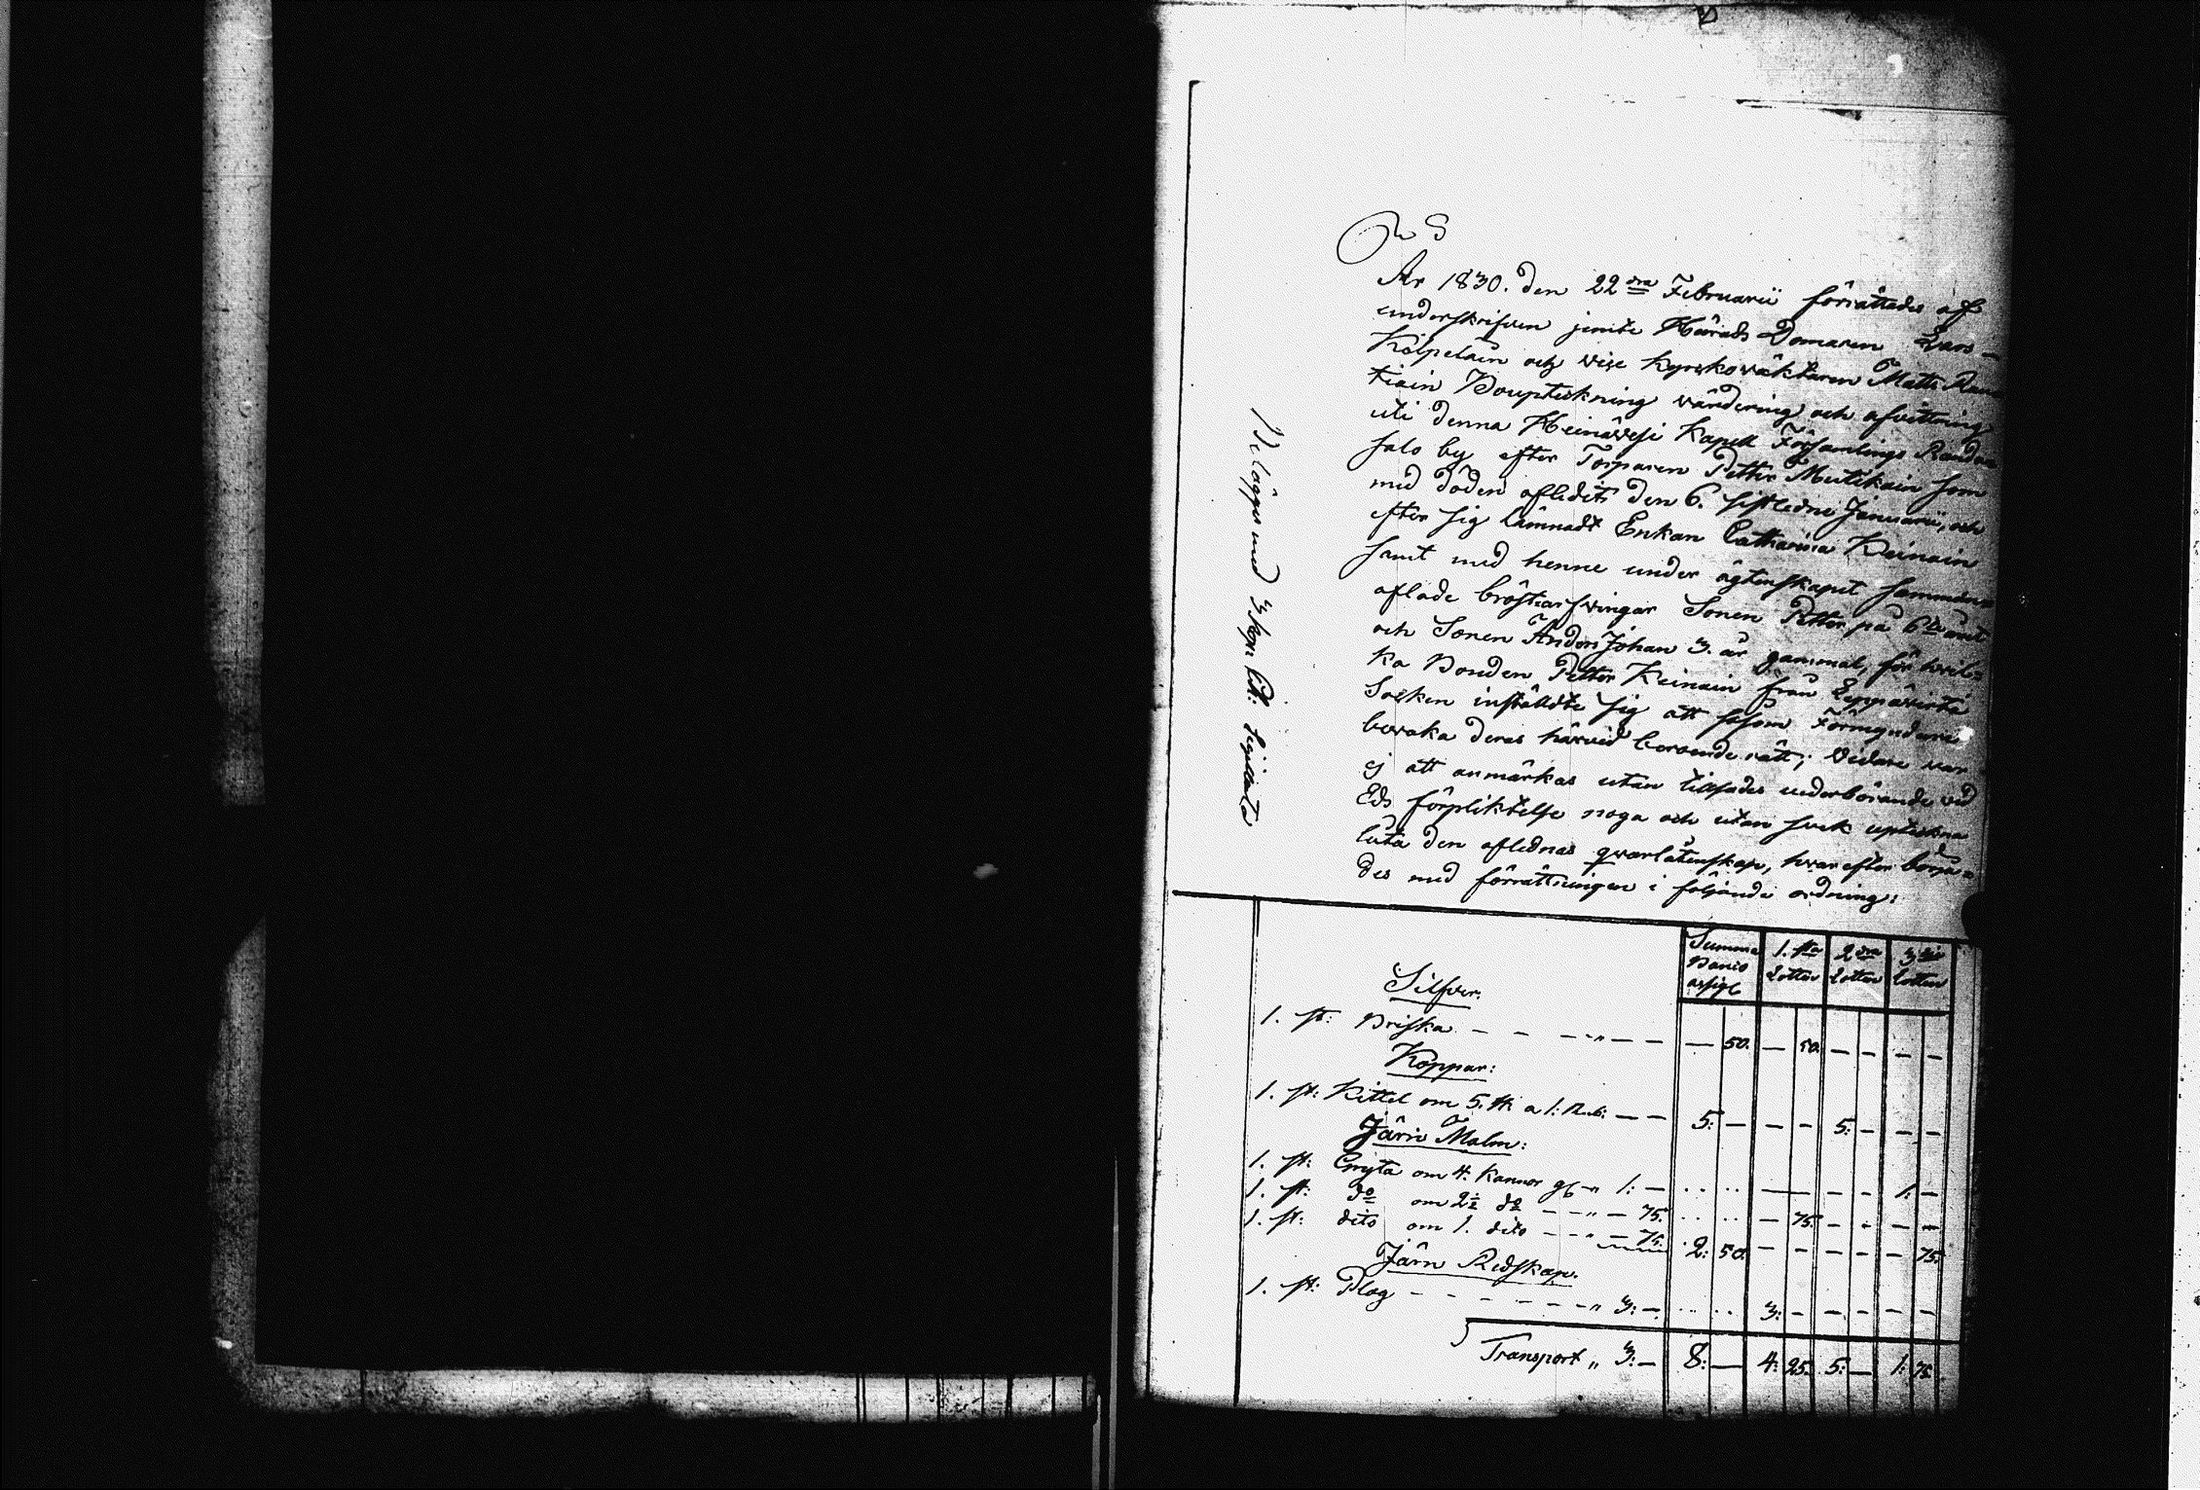 År 1830. den 22dra Februarii förrättades af
underskrifven jemte Härads Domaren Lars
Kolpelain och vice Kyrkoväktaren Matts
tiain Bouptekning värdering och afvittring
uti denna Heinävesi Kapell Församlings Randa
salo by efter Torparen Petter Mutikain som
med döden aflidit den 6. sistledne Januarii, och
efter sig lämnadt Enkan Catharina Keinain
samt med henne under ägtenskapet samman
aflade bröstarfvingar Sonen Petter på 6te året
och Sonen Anders Johan 3. år gammal, för hvil=
ka Bonden Petter Keinain från Leppävirta
Socken instäldte sig att såsom Förmyndare
bevaka deras härvid beroende rätt; Vidare var
ej att anmärkas utan tillsades vederbörande vid
Eds förpliktelse noga och utan svek upteckna
låta den aflidnas qvarlåtenskap, hvarefter börja=
des med förrättningen i följande ordning:
Belägges med 3 kop: Ct: Sigillata
Summa Banco assign 1.sta Lotten 2dra Lotten 3die Lotten
Silfver:
1. st: Briska — — — " — — — 50. — 50. — — — —
Koppar:
1. st: Kittel om 5. ℔ a 1: Rub: — — 5: — — — 5: — — —
Järn Malm:
1. st: Gryta om 4. Kannor " 1: — .. .. — — — — 1: —
1. st: do om 2½ do — — " — 75. .. .. — 75. — — — —
1. st: dito om 1. dito — — " — 75. 2: 50. — — — — — 75.
Järn Redskap.
1. st: Plog — — — — — — " 3: — .. .. 3: — — — — —
Transport " 3: — 8: — 4: 25. 5: — 1: 75.